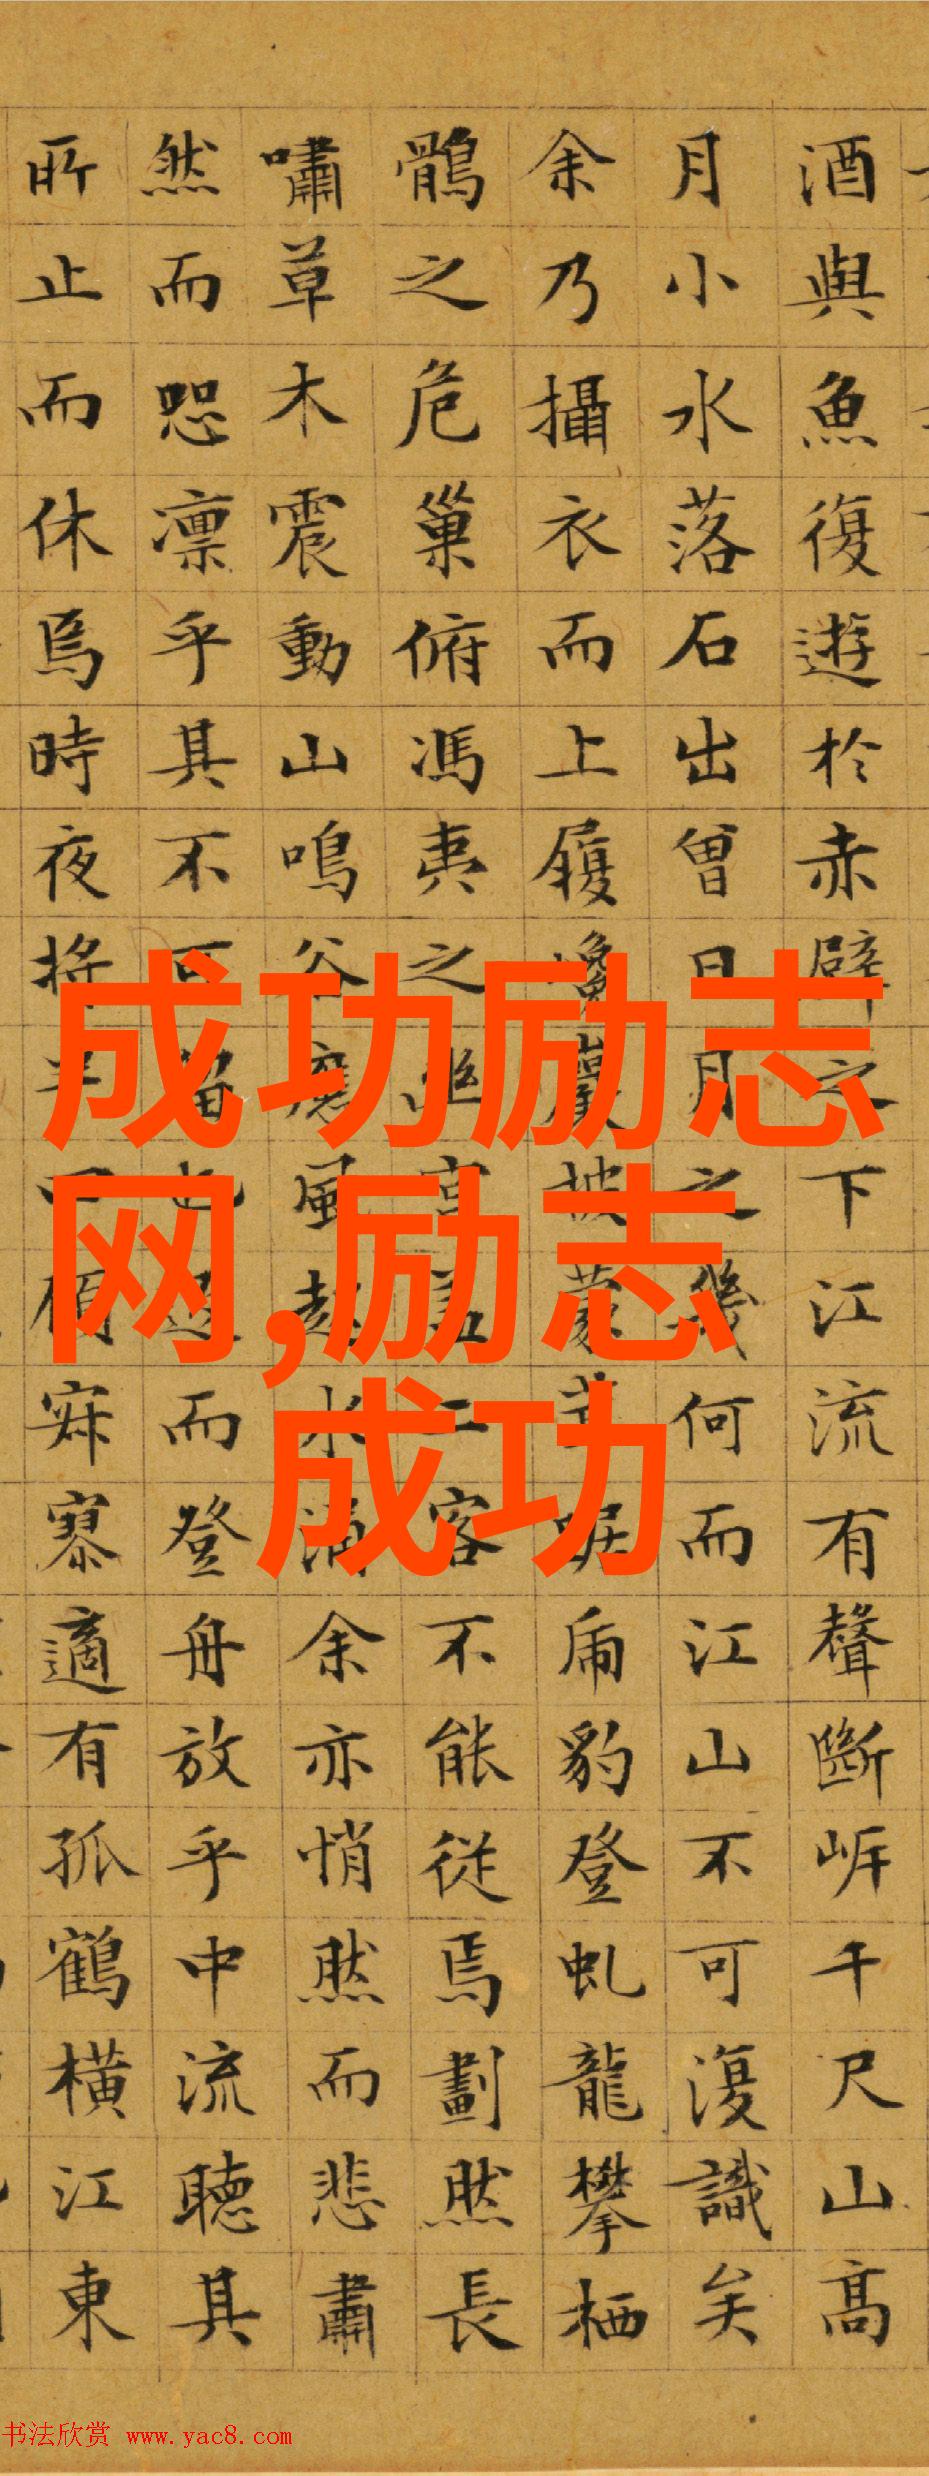 酒與魚復遊於赤壁之下江流有聲斷岸千尺山高
月小水落石出曾日月之幾何而江山不可復識矣
余乃攝衣而上履巉巖披蒙茸踞虎豹登虬龍攀栖
鶻之危巢俯馮夷之幽宮盖二客不能從焉劃然長
嘯草木震動山鳴谷應風起水涌余亦悄然而悲肅
然而恐凛乎其不可留也返而登舟放乎中流聽其
所止而休焉時夜將半四顧寂寥適有孤鶴橫江東
成功励志
网,励志
成功
书法欣赏 www.yac8.com